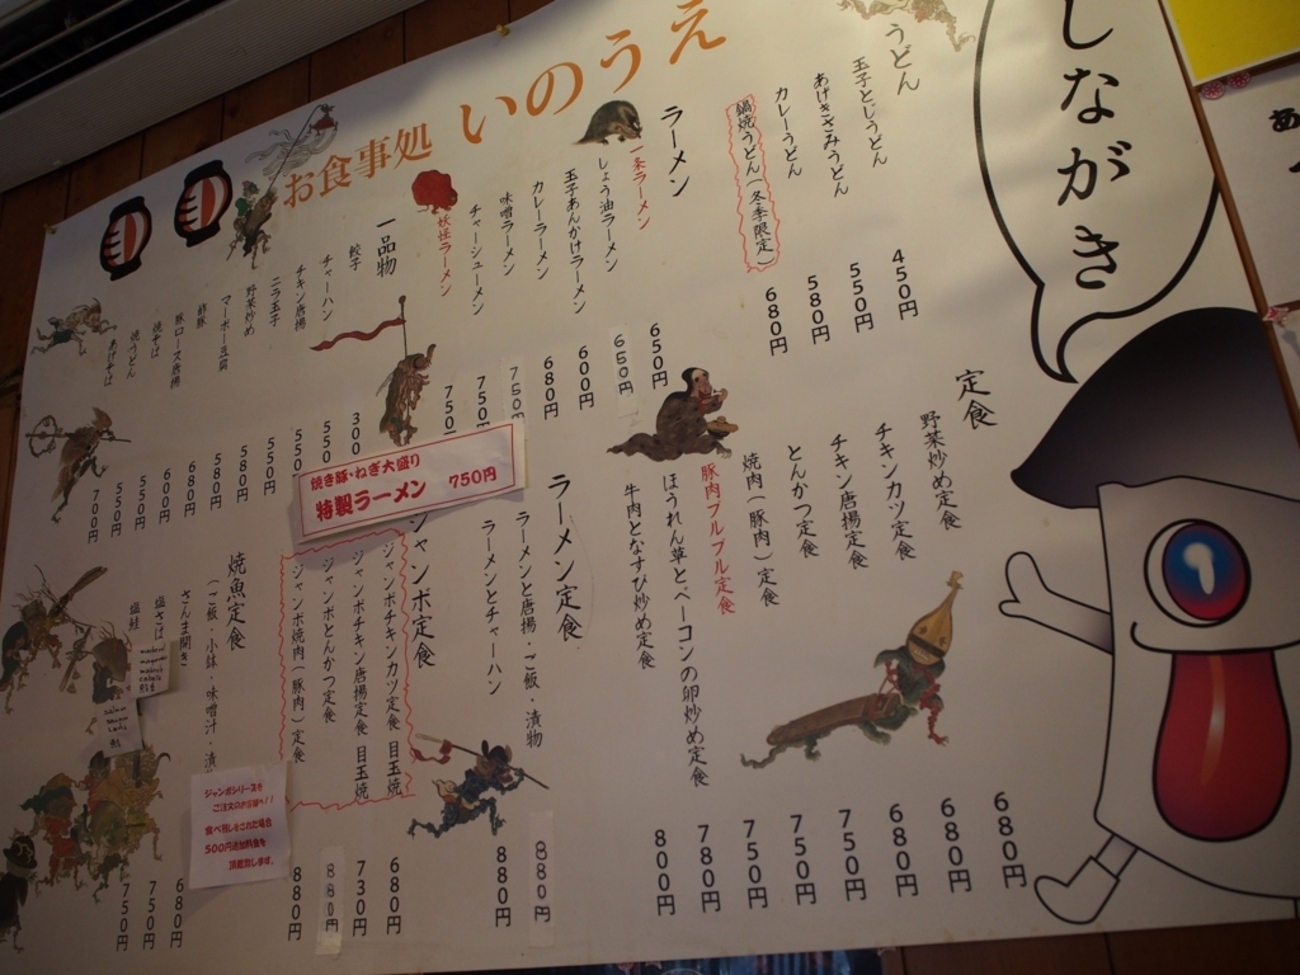 しながき
お食事処 いのうえ
うどん
玉子とじうどん
あげきざみうどん
カレーうどん
鍋焼うどん(冬季限定)
450円
550円
580円
680円
ラーメン
一条ラーメン
しょう油ラーメン
玉子あんかけラーメン
カレーラーメン
味噌ラーメン
チャーシューメン
妖怪ラーメン
650円
650円
600円
680円
750円
750円
750円
一品物
餃子
チャーハン
チキン唐揚
ニラ玉子
野菜炒め
マーボー豆腐
酢豚
豚ロース唐揚
焼そば
焼うどん
あげそば
300
550
550
550円
580円
580円
680円
600円
550円
550円
700円
焼き豚・ねぎ大盛り
特製ラーメン 750円
定食
野菜炒め定食
チキンカツ定食
チキン唐揚定食
とんかつ定食
焼肉(豚肉)定食
豚肉プルプル定食
ほうれん草とベーコンの卵炒め定食
牛肉となすび炒め定食
680円
680円
680円
750円
750円
750円
780円
800円
ラーメン定食
ラーメンと唐揚・ご飯・漬物
ラーメンとチャーハン
880円
880円
ジャンボ定食
ジャンボチキンカツ定食 目玉焼
ジャンボチキン唐揚定食 目玉焼
ジャンボとんかつ定食
ジャンボ焼肉(豚肉)定食
680円
730円
880円
880円
焼魚定食
(ご飯・小鉢・味噌汁・漬
さんま開き
塩さば
塩鮭
680円
750円
750円
ジャンボシリーズを
ご注文のお客様へ!!
食べ残しをされた場合
500円追加料金を
頂戴致します。
salmon
鮭
あ